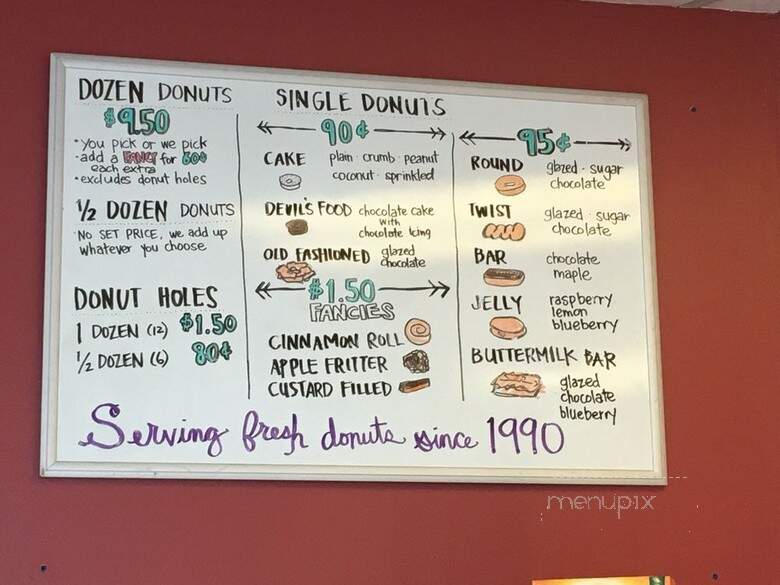 DOZEN DONUTS
$9.50
• you pick or we pick
• add a FANCY for 60¢
each extra
• excludes donut holes
1/2 DOZEN DONUTS
NO SET PRICE, we add up
whatever you choose
DONUT HOLES
1 DOZEN (12) $1.50
1/2 DOZEN (6) 80¢
SINGLE DONUTS
90¢
CAKE plain · crumb · peanut
coconut · sprinkled
DEVIL'S FOOD chocolate cake
with
chocolate icing
OLD FASHIONED glazed
chocolate
$1.50
FANCIES
CINNAMON ROLL
APPLE FRITTER
CUSTARD FILLED
95¢
ROUND glazed · sugar
chocolate
TWIST glazed · sugar
chocolate
BAR chocolate
maple
JELLY raspberry
lemon
blueberry
BUTTERMILK BAR
glazed
chocolate
blueberry
Serving fresh donuts since 1990
menupix